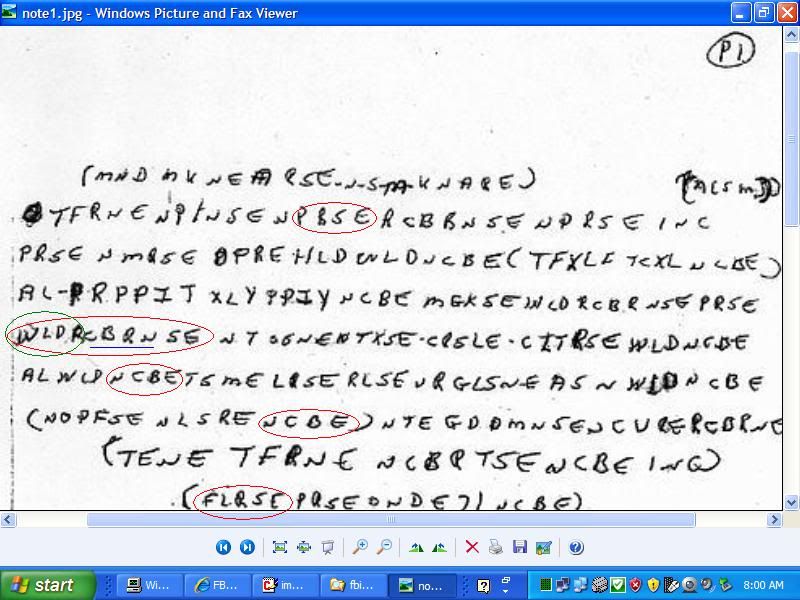 note1.jpg - Windows Picture and Fax Viewer
P1
(MND MKNEARSE-N-S-M-KNARE) (ACSM)
TFRNENPINSENPRSERCBRNSENPRSE INC
PRSENMRSEOPREHLDWLDNCBE(TFXLF TCXLNCBE)
AL-PRPPIT XLYPPIYNCBE MGKSEWLDRCBRNSEPRSE
WLDRCBRNSE NTSGNENTXSE-CRSLE-CITRSEWLDNCBE
ALWLPNCBETSMELRSERLSEURGLSNEASNWLDNCBE
(NOPFSENLSRENCBE)NTEGDDMNSENCURERCBRNE
(TENE TFRNE NCBRTSENCBE INC)
(FLRSEPRSEONDE71NCBE)
start Wi... FB... im... fbi... no... 8:00 AM